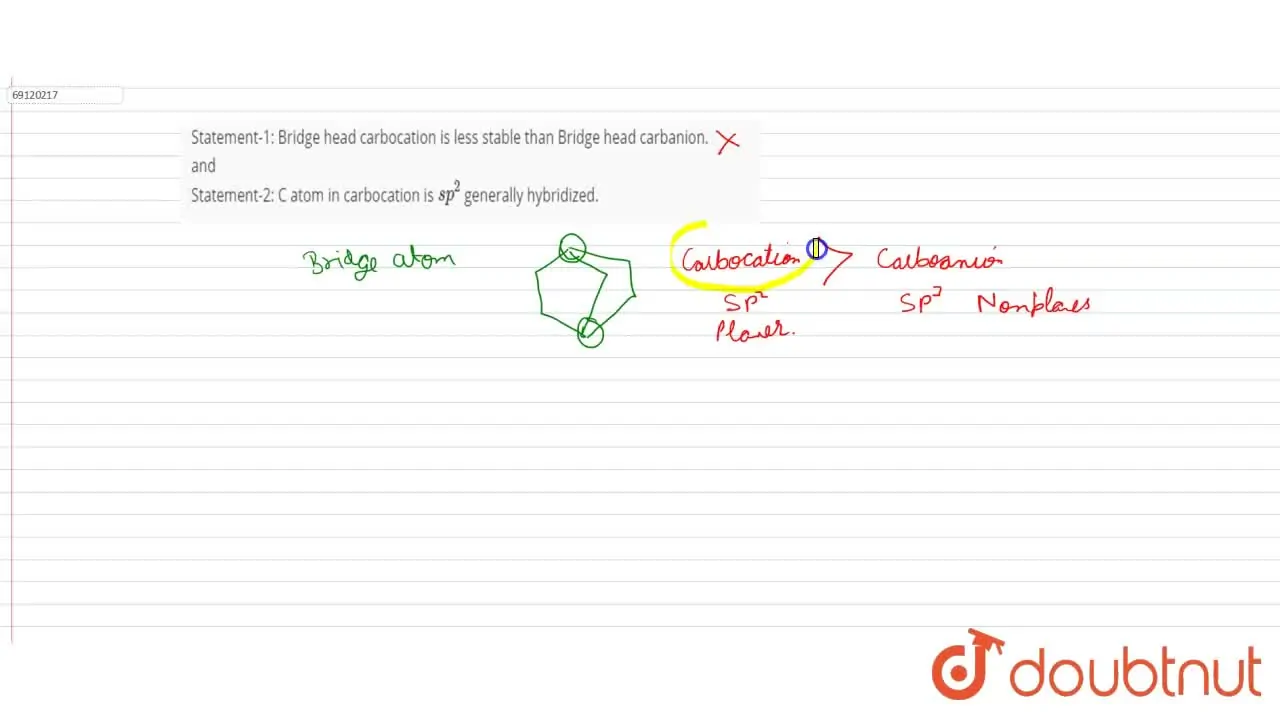 69120217
Statement-1: Bridge head carbocation is less stable than Bridge head carbanion. X
and
Statement-2: C atom in carbocation is sp² generally hybridized.
Bridge atom
Carbocation > Carboanion
SP² SP³ Nonplaner
Planer.
doubtnut